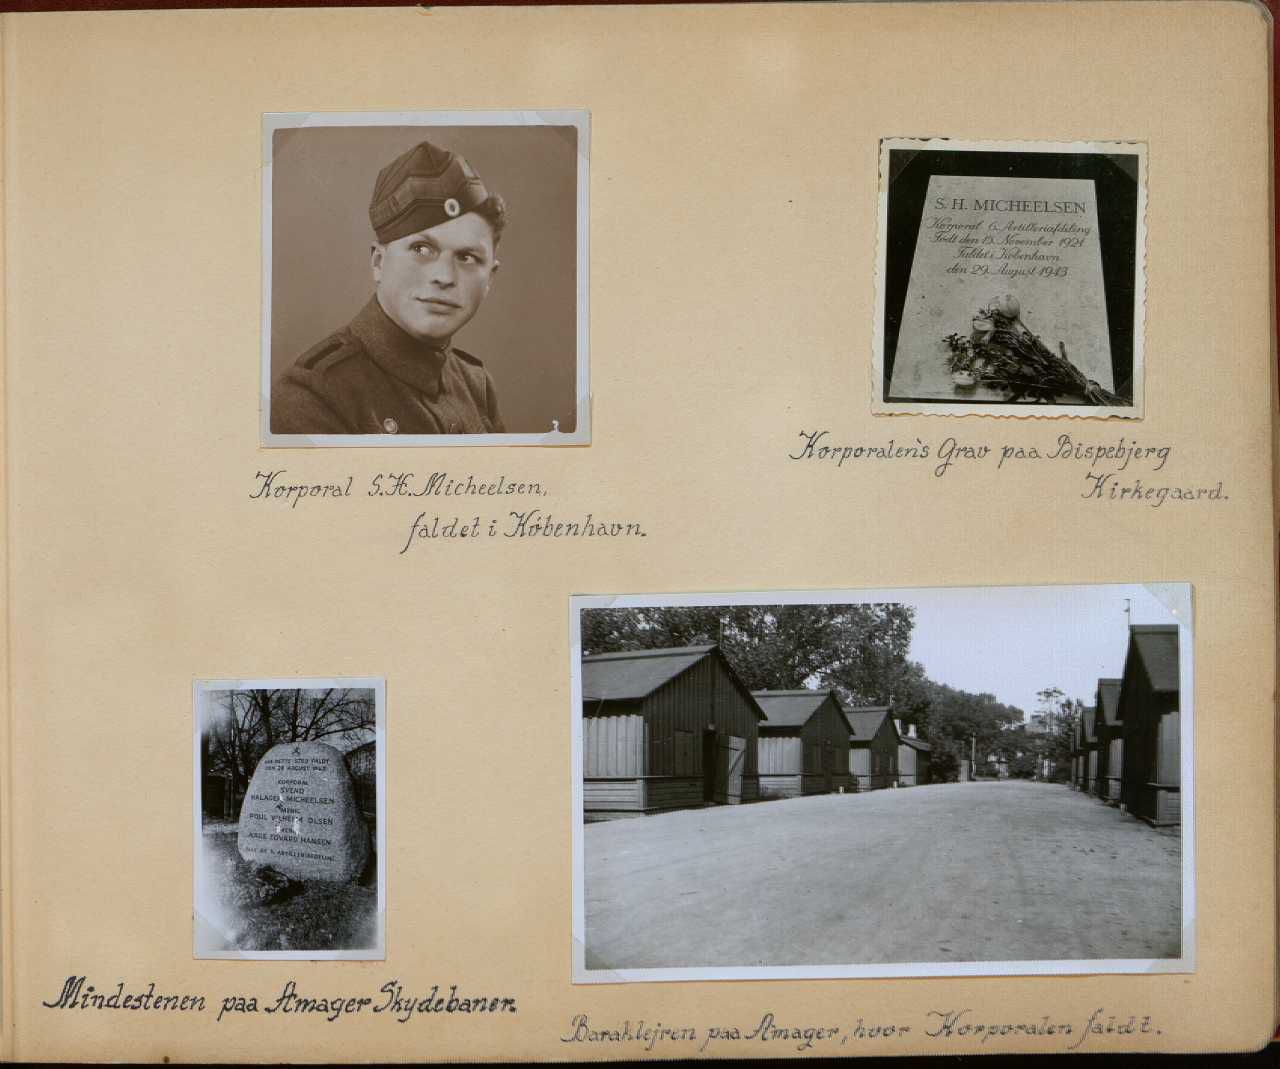 S. H. MICHEELSEN
Korporal 6. Artilleriafdeling
Født den 15. November 1921
Faldet i København
den 29. August 1943
Korporal S.H. Micheelsen,
faldet i København.
Korporalen's Grav paa Bispebjerg
Kirkegaard.
PAA DETTE STED FALDT
DEN 29 AUGUST 1943
KORPORAL
SVEND
HALAGER MICHEELSEN
MENIG
POUL VILHELM OLSEN
MENIG
AAGE EDVARD HANSEN
ARTILLERIAFDELING
Mindestenen paa Amager Skydebaner.
Baraklejren paa Amager, hvor Korporalen faldt.